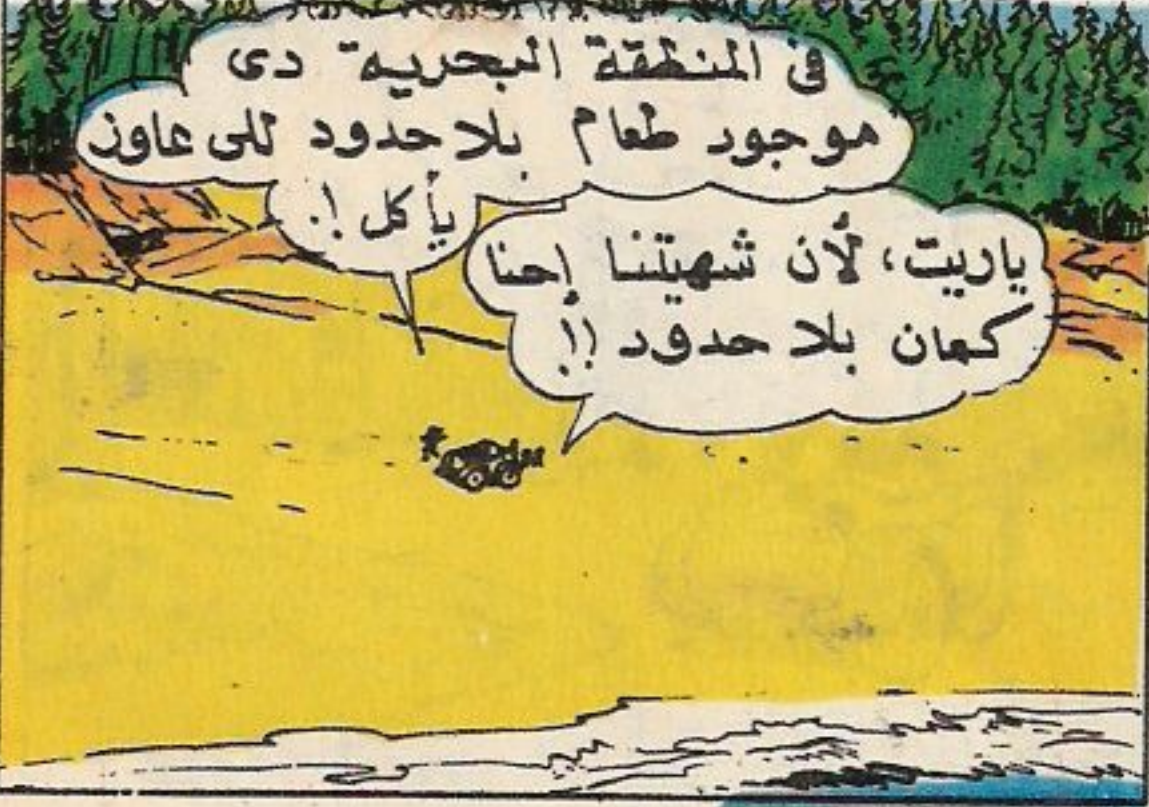 فى المنطقة البحرية دى
موجود طعام بلا حدود للى عاوز
يأكل !.
ياريت، لأن شهيتنا إحنا
كمان بلا حدود !!